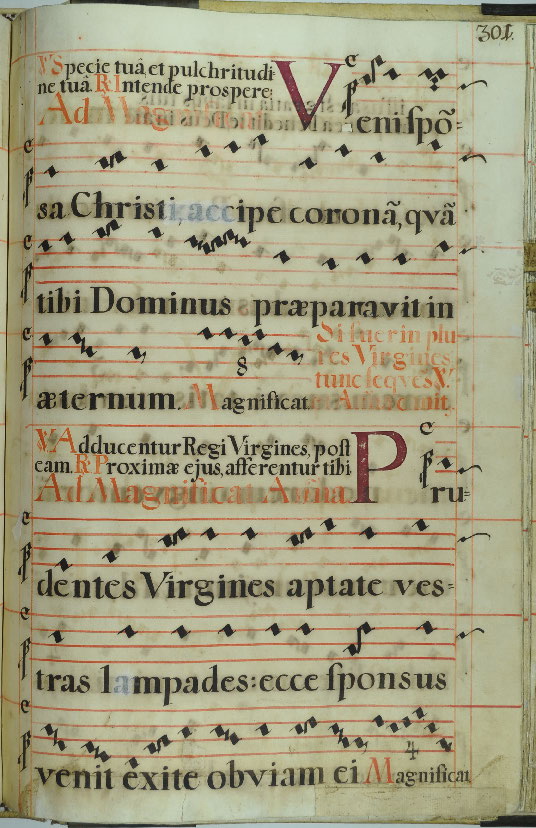 301.
℣. Specie tuâ, et pulchritudi-
ne tuâ. ℟. Intende prospere:
Ad Mag
Veni ſpõ=
sa Christi, accipe coronã, quã
tibi Dominus præparavit in
Si fuerin plu
res Virgines,
tunc seq. ves ℣.
æternum. Magnificat.
℣. Adducentur Regi Virgines, poſt
eam. ℟. Proximæ ejus, afferentur tibi
Ad Magnificat Aña.
Pru=
dentes Virgines aptate ves=
tras lampades: ecce ſponsus
venit exite obviam ei Magnificat
8
4